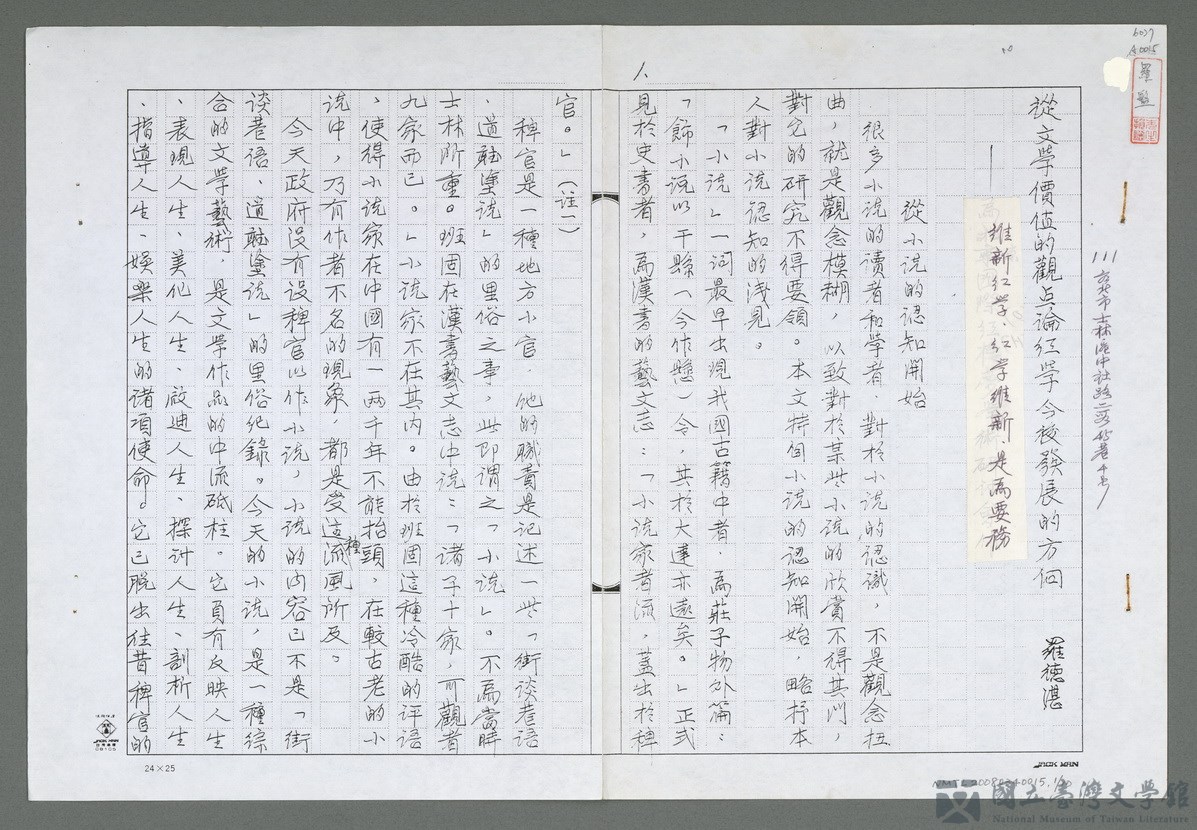 從文學價值的觀点論紅學今後發展的方向
羅德湛
——維新紅學·紅學維新·是為要務
從小说的認知開始
很多小说的读者和學者·對於小说的認識，不是觀念扭
曲，就是觀念模糊，以致對於某些小说的欣賞不得其门，
對它的研究不得要領。本文特個小说的認知開始，略抒本
人對小说認知的淺見。
「小说」一词最早出現我國古籍中者·為莊子物外篇：
「飾小说以干縣（今作懸）令，其於大達亦遠矣。」正式
見於史書者，為漢書的藝文志：「小说家者流，蓋出於稗
官。」（註一）
稗官是一種地方小官·他的職責是记述一些「街谈巷语
·道聽塗说」的里俗之事，此即谓之「小说」。不為當時
士林所重。班固在漢書藝文志中说：「諸子十家，可觀者
九家而已。」小说家不在其内。由於班固這種冷酷的评语
、使得小说家在中國有一两千年不能抬頭，在較古老的小
说中，乃有作者不名的現象，都是受這種流風所及。
今天政府没有设稗官以作小说，小说的内容已不是「街
谈巷语、道聽塗说」的里俗纪錄。今天的小说，是一種綜
合的文學藝術，是文學作品的中流砥柱。它負有反映人生
、表現人生、美化人生、啟迪人生、探讨人生、剖析人生
、指導人生、娛樂人生的诸项使命。它已脱出往昔稗官的
111台北市士林區中社路二段
6027
A0015
24×25
JACK MAN
國立臺灣文學館
National Museum of Taiwan Literature